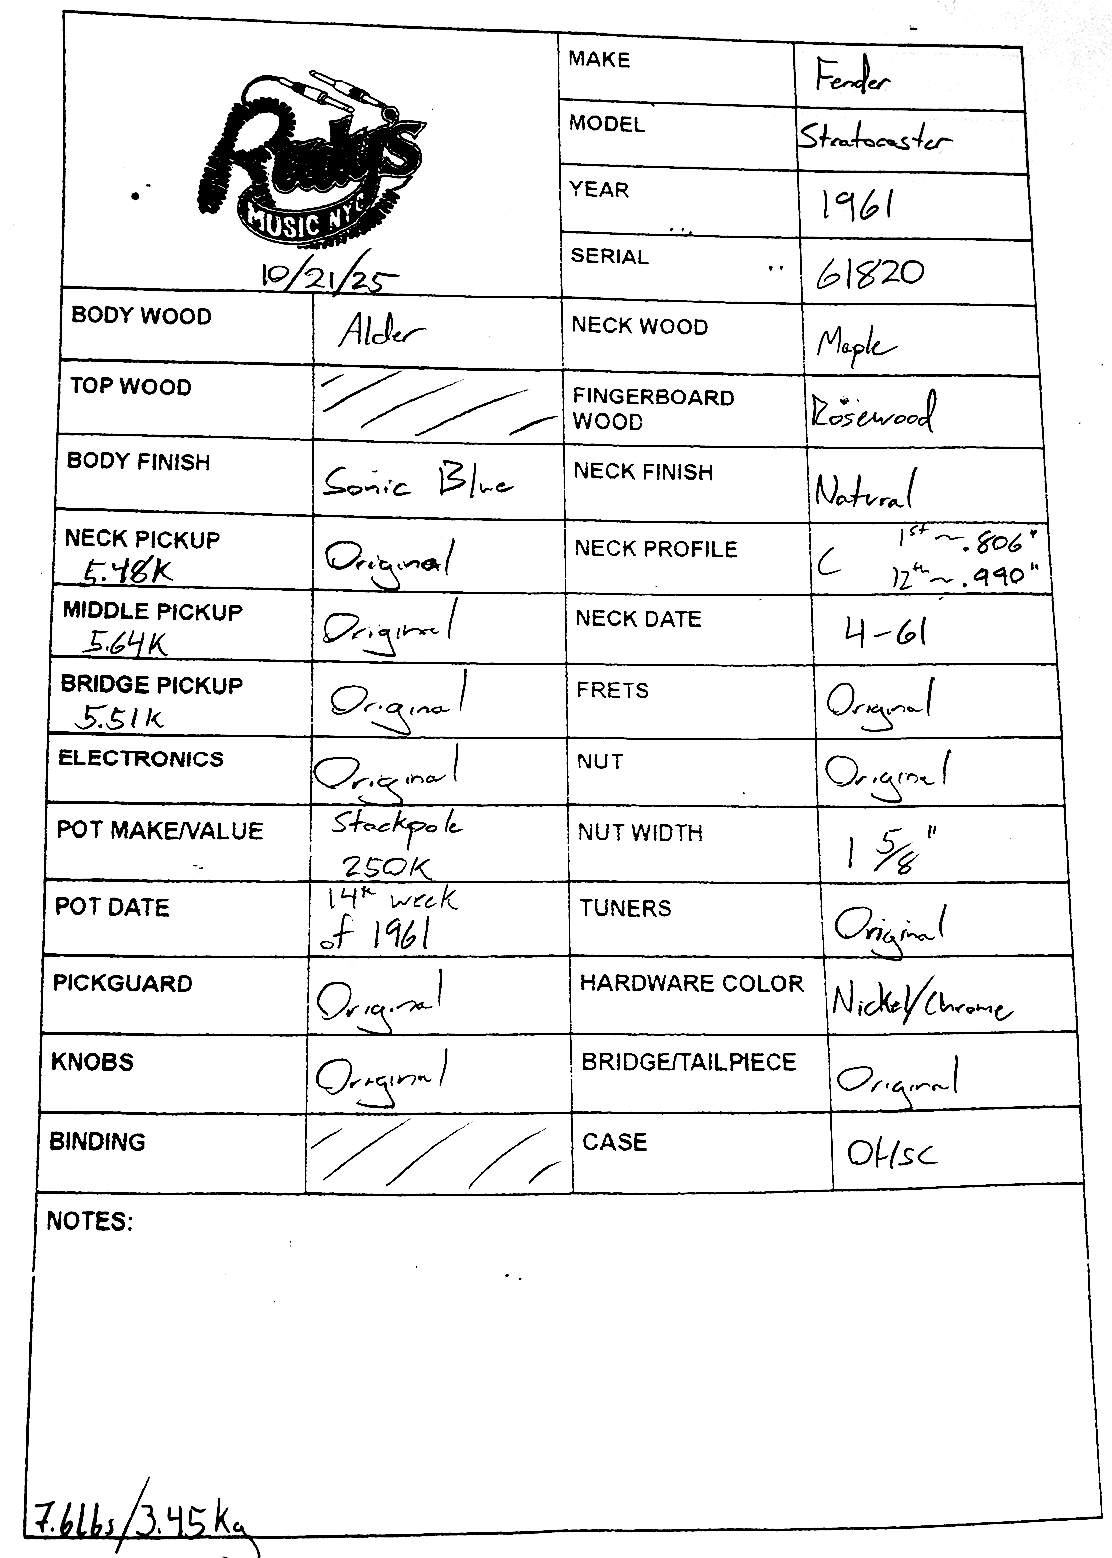 Rudy's
MUSIC NYC
10/21/25
MAKE Fender
MODEL Stratocaster
YEAR 1961
SERIAL 61820
BODY WOOD Alder NECK WOOD Maple
TOP WOOD FINGERBOARD WOOD Rosewood
BODY FINISH Sonic Blue NECK FINISH Natural
NECK PICKUP 5.48K Original NECK PROFILE C 1st ~ .806" 12th ~ .990"
MIDDLE PICKUP 5.64K Original NECK DATE 4-61
BRIDGE PICKUP 5.51K Original FRETS Original
ELECTRONICS Original NUT Original
POT MAKE/VALUE Stackpole 250K NUT WIDTH 1 5/8"
POT DATE 14th week of 1961 TUNERS Original
PICKGUARD Original HARDWARE COLOR Nickel/Chrome
KNOBS Original BRIDGE/TAILPIECE Original
BINDING CASE OHSC
NOTES:
7.6lbs/3.45Kg